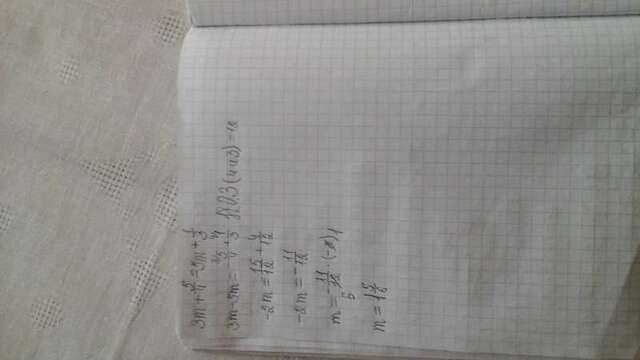 3m + 5/4 = 5m + 1/3
3m - 5m = - 5/4 + 1/3 НОЗ (4 и 3) = 12
-2m = 15/12 + 4/12
-2m = - 11/12
m = - 11/12 · (-2)
m = 1 5/6